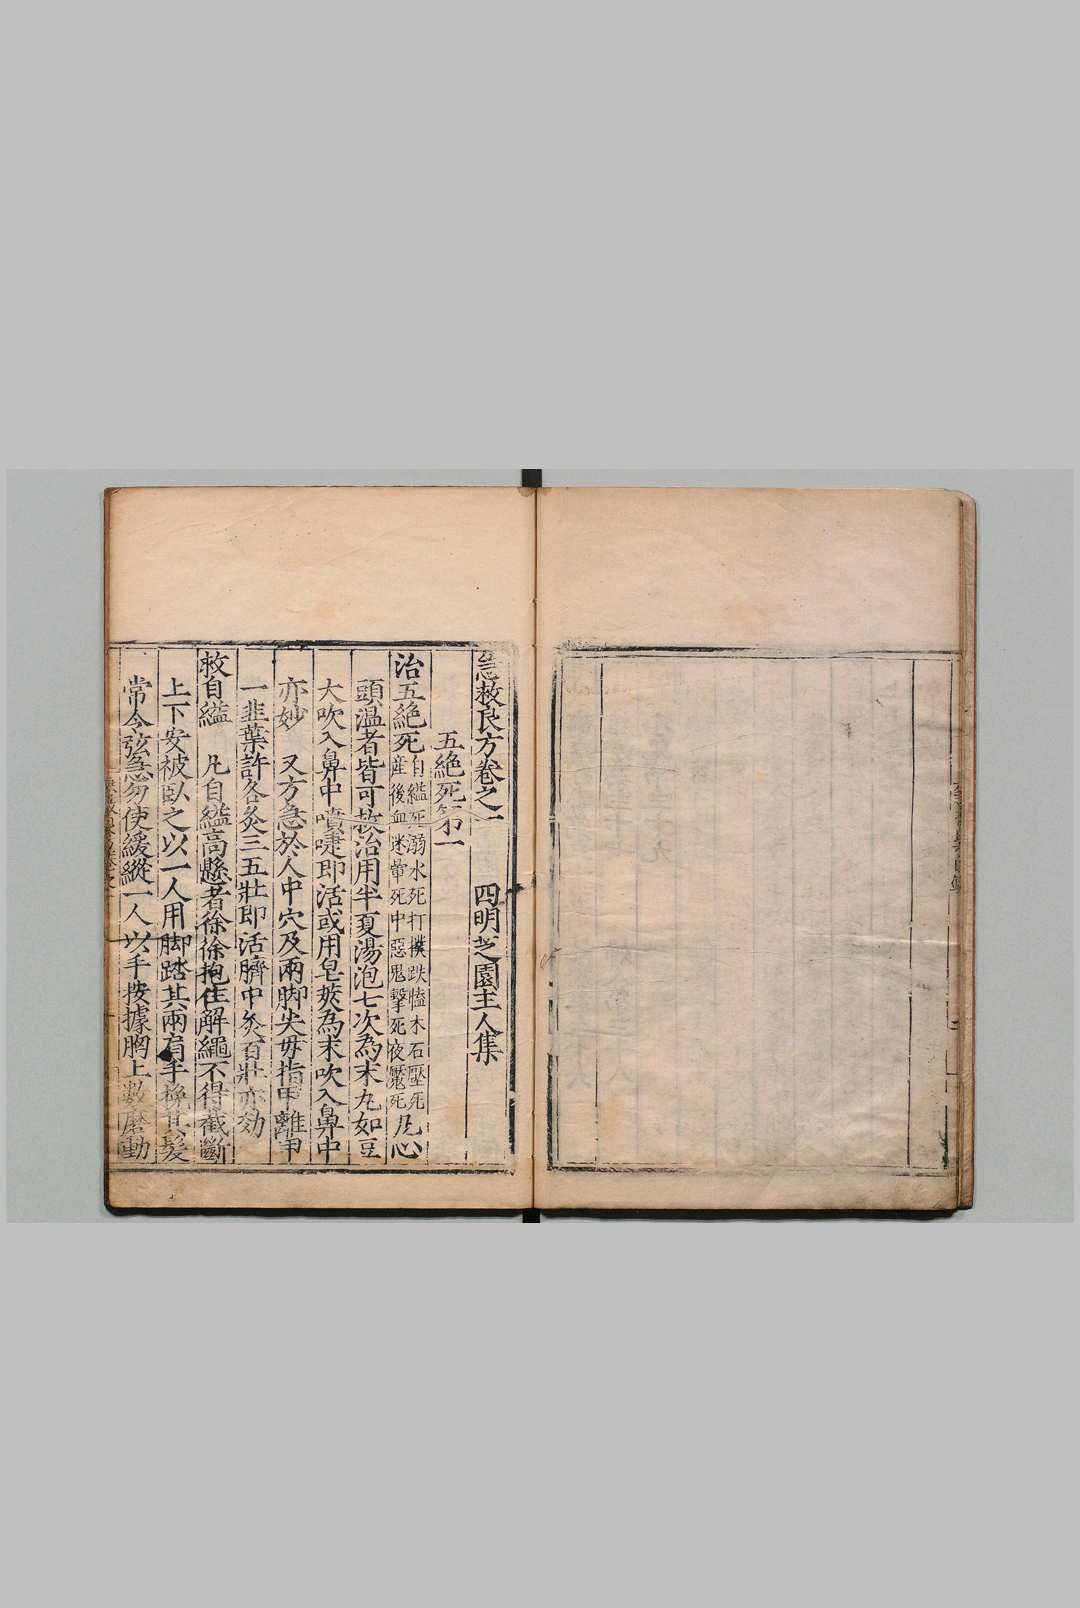 急救良方卷之一　四明芝園主人集
五絶死第一
治五絶死自縊死溺水死打撲跌磕木石壓死産後血迷暈死中惡鬼擊死夜魘死凡心
頭温者皆可救治用半夏湯泡七次為末丸如豆
大吹入鼻中噴嚏即活或用皂莢為末吹入鼻中
亦妙　又方急於人中穴及兩脚尖母指甲離甲
一韭葉許各灸三五壯即活臍中灸百壯亦効
救自縊　凡自縊高懸者徐徐抱住解繩不得截斷
上下安被臥之以一人用脚踏其兩肩手挽其髮
常令弦急勿使緩縱一人以手按據胸上數摩動